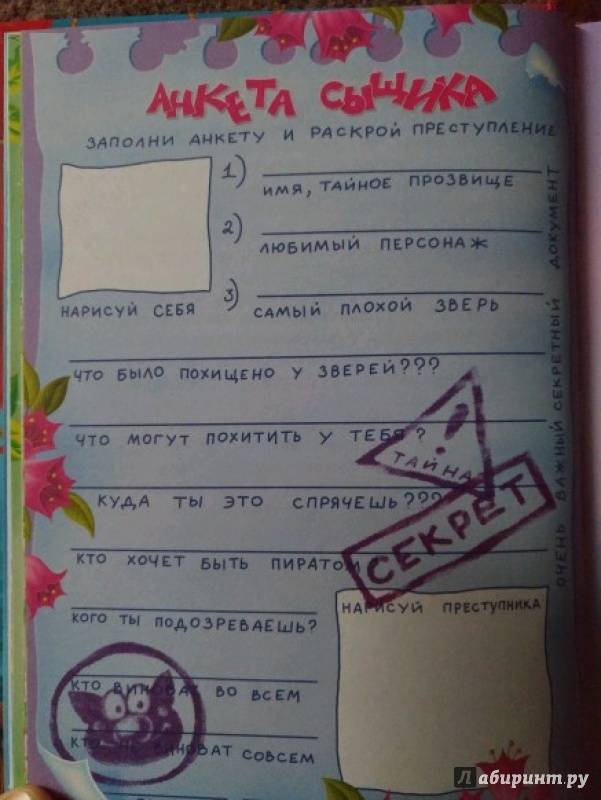 АНКЕТА СЫЩИКА
ЗАПОЛНИ АНКЕТУ И РАСКРОЙ ПРЕСТУПЛЕНИЕ
1)
ИМЯ, ТАЙНОЕ ПРОЗВИЩЕ
2)
ЛЮБИМЫЙ ПЕРСОНАЖ
НАРИСУЙ СЕБЯ
3)
САМЫЙ ПЛОХОЙ ЗВЕРЬ
ЧТО БЫЛО ПОХИЩЕНО У ЗВЕРЕЙ???
ЧТО МОГУТ ПОХИТИТЬ У ТЕБЯ?
!
ТАЙНА
КУДА ТЫ ЭТО СПРЯЧЕШЬ???
СЕКРЕТ
КТО ХОЧЕТ БЫТЬ ПИРАТОМ
КОГО ТЫ ПОДОЗРЕВАЕШЬ?
НАРИСУЙ ПРЕСТУПНИКА
КТО ВИНОВАТ ВО ВСЕМ
КТО НЕ ВИНОВАТ СОВСЕМ
ОЧЕНЬ ВАЖНЫЙ СЕКРЕТНЫЙ ДОКУМЕНТ
Лабиринт.ру